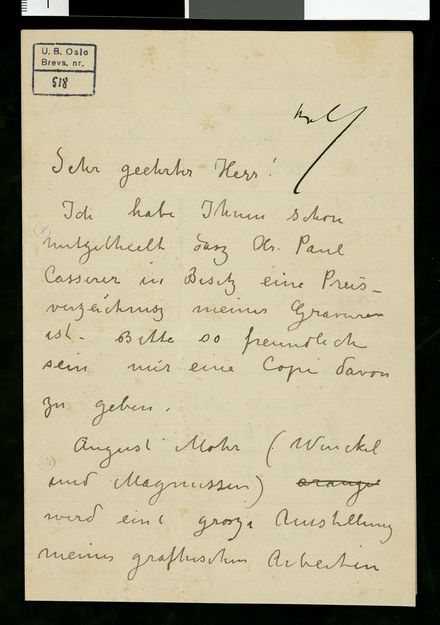 U. B. Oslo
Brevs. nr.
518
Sehr geehrter Herr!
Ich habe Ihnen schon
mitgetheelt dasz Hr. Paul
Cassirer in Besitz eine Preis-
verzeichnisz meiner Gravuren
ist. Bitte so freundlich
sein mir eine Copi davon
zu geben.
August Mohr (Winckel
und Magnussen) arange
wird eine grosze Ausstellung
meines grafhischen Arbeiten